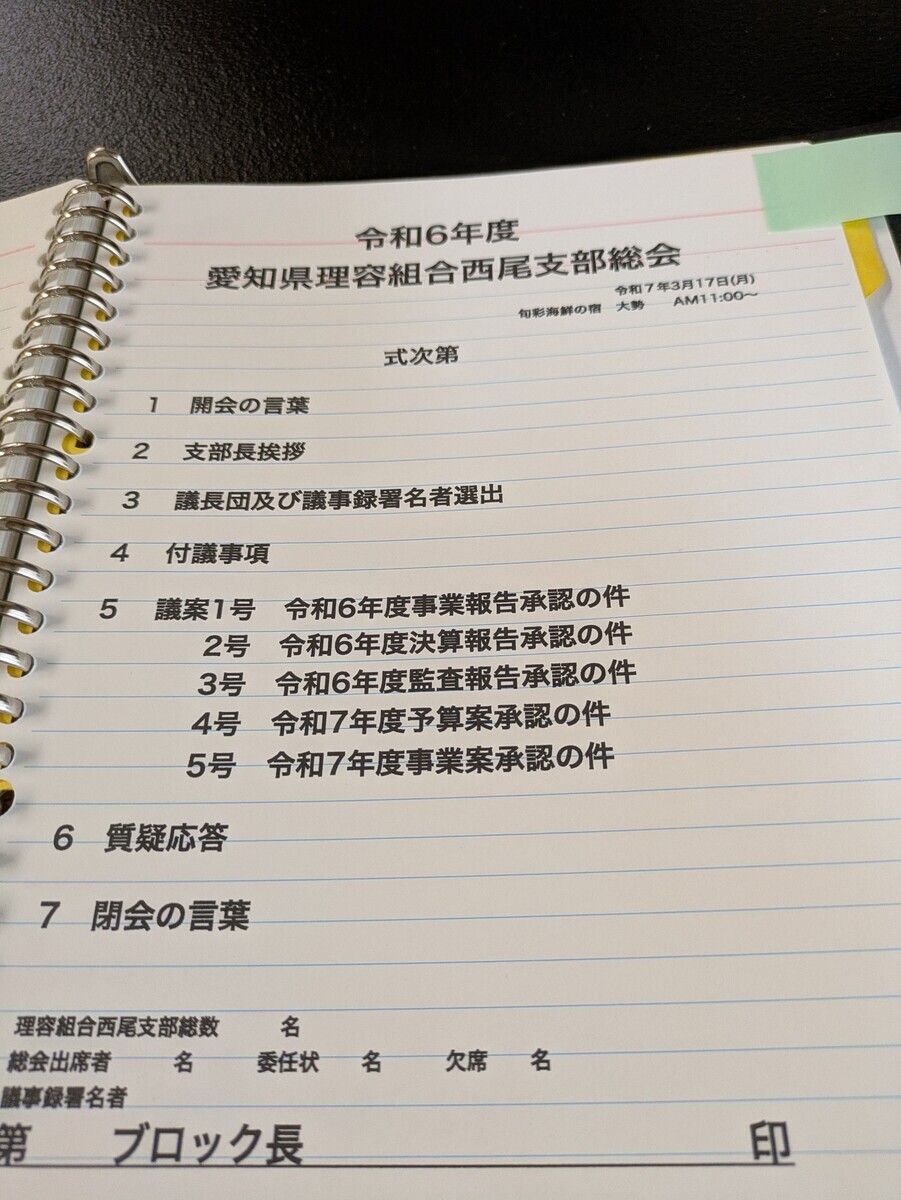 令和6年度
愛知県理容組合西尾支部総会
令和7年3月17日(月)
旬彩海鮮の宿 大勢 AM11:00～
式次第
1 開会の言葉
2 支部長挨拶
3 議長団及び議事録署名者選出
4 付議事項
5 議案1号 令和6年度事業報告承認の件
2号 令和6年度決算報告承認の件
3号 令和6年度監査報告承認の件
4号 令和7年度予算案承認の件
5号 令和7年度事業案承認の件
6 質疑応答
7 閉会の言葉
理容組合西尾支部総数 名
総会出席者 名 委任状 名 欠席 名
議事録署名者
第 ブロック長 印